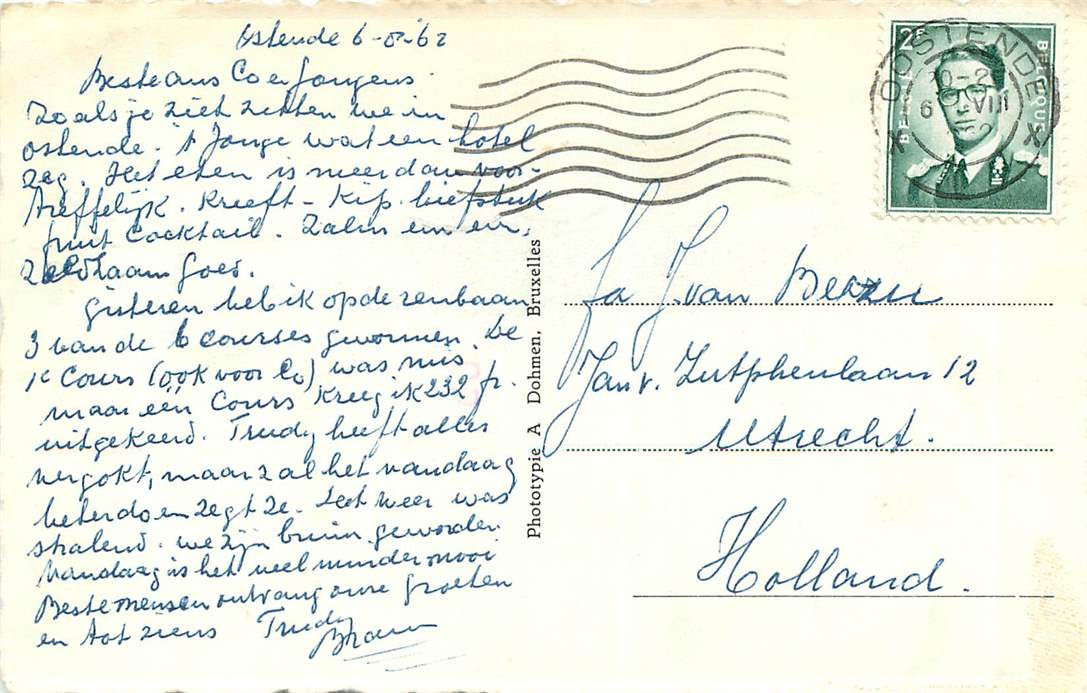 Ostende 6-8-62
Beste ans Co en Jongens.
Zoals je ziet zitten we in
Ostende. 't Jonge wat een hotel
zeg. Het eten is meer dan voor-
treffelijk. Kreeft - Kip. biefstuk
fruit Cocktail. Zalm en en.
Zeldzaam goed.
Gisteren heb ik op de renbaan
3 van de 6 courses gewonnen. De
1e Cours (óók voor Co) was mis
maar één Cours kreeg ik 232 fr.
uitgekeerd. Trudy heeft alles
vergokt, maar zal het vandaag
beter doen zegt ze. Het weer was
stralend. we zijn bruin geworden.
Vandaag is het veel minder mooi
Beste mensen ontvang onze groeten
en tot ziens Trudy
Bram
Phototypie A Dohmen, Bruxelles
2F
BELGIE
BELGIQUE
OOSTENDE
6 VIII
fa J. van
Jan v. Zutphenlaan 12
Utrecht.
Holland.